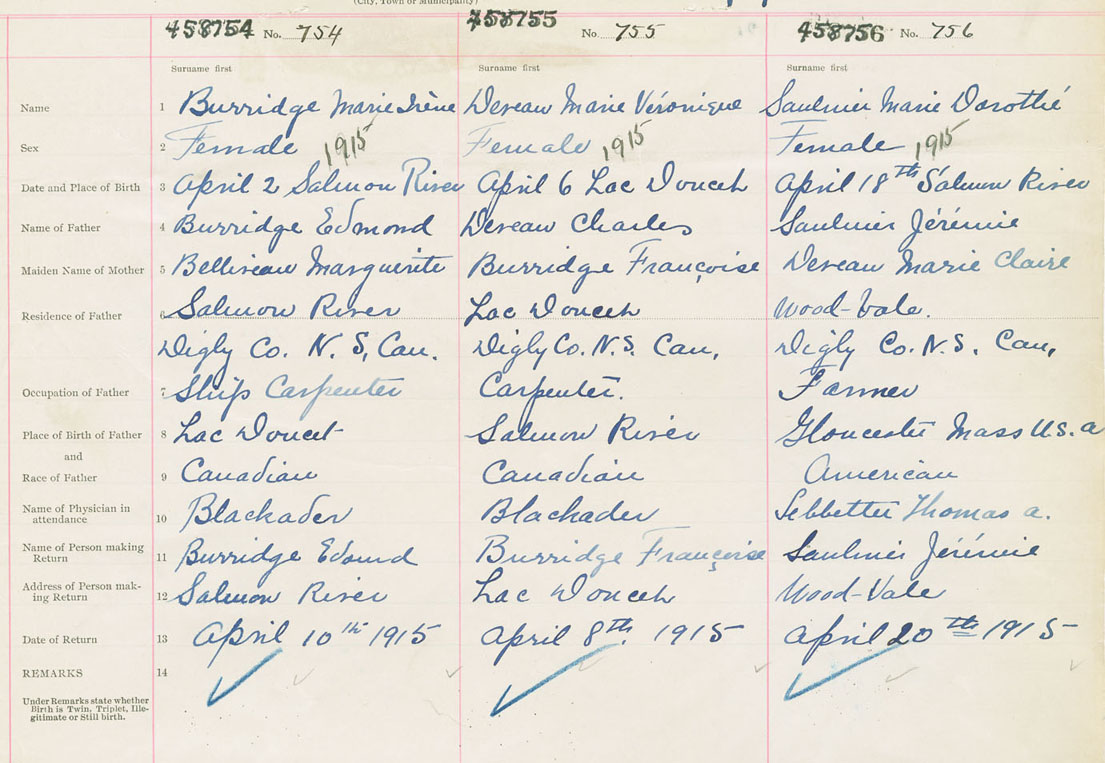 (City, Town or Municipality)
458754 No. 754 458755 No. 755 458756 No. 756
Surname first Surname first Surname first
Name 1 Burridge Marie Irène Deveau Marie Véronique Saulnier Marie Dorothé
Sex 2 Female 1915 Female 1915 Female 1915
Date and Place of Birth 3 April 2 Salmon River April 6 Lac Doucet April 18th Salmon River
Name of Father 4 Burridge Edmond Deveau Charles Saulnier Jérémie
Maiden Name of Mother 5 Belliveau Marguerite Burridge Françoise Deveau Marie Claire
Residence of Father 6 Salmon River Lac Doucet Wood-Vale.
Digby Co. N. S, Can. Digby Co. N.S. Can, Digby Co. N.S. Can,
Occupation of Father 7 Ship Carpenter Carpenter. Farmer
Place of Birth of Father 8 Lac Doucet Salmon River Gloucester Mass U.S.a
and
Race of Father 9 Canadian Canadian American
Name of Physician in
attendance 10 Blackader Blackader Thomas a.
Name of Person making
Return 11 Burridge Edmund Burridge Françoise Saulnier Jérémie
Address of Person mak-
ing Return 12 Salmon River Lac Doucet Wood-Vale
Date of Return 13 April 10th 1915 April 8th. 1915 April 20th 1915
REMARKS 14
Under Remarks state whether
Birth is Twin, Triplet, Ille-
gitimate or Still birth.